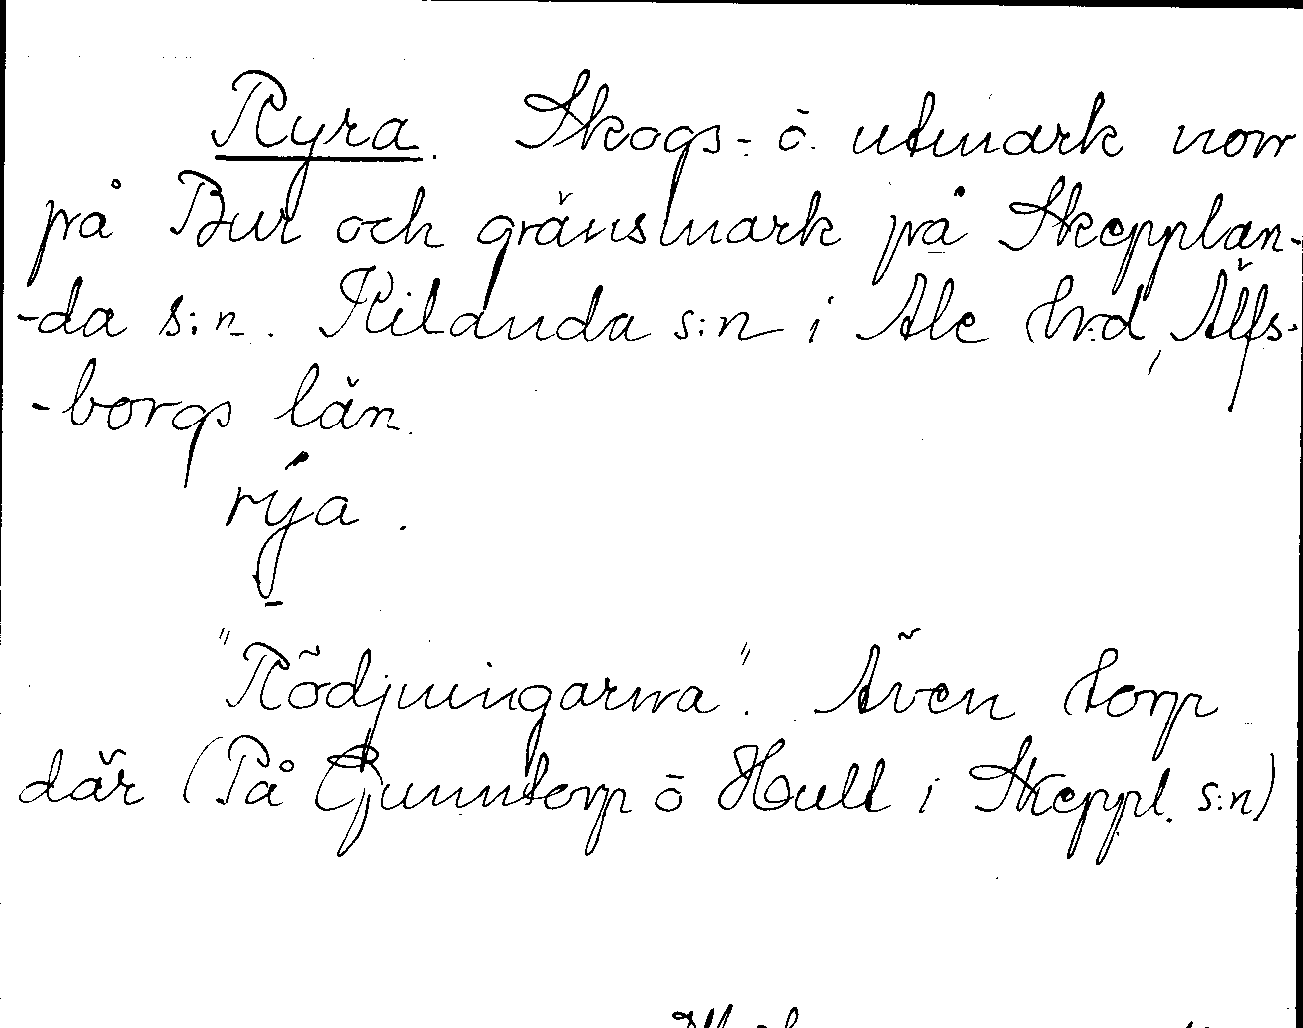 Ryra. Skogs- ō. utmark norr
på Bur och gränsmark på Skepplan-
-da s:n. Kilanda s:n i Ale hrd, Älfs-
-borgs län.
rýa.
"Rödjningarna". Även torp
där (På Gunntorp ō Hult i Skeppl. s:n)